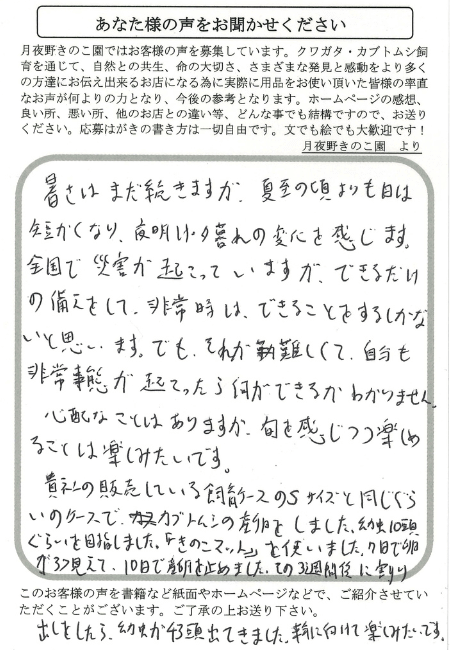 あなた様の声をお聞かせください
月夜野きのこ園ではお客様の声を募集しています。クワガタ・カブトムシ飼
育を通じて、自然との共生、命の大切さ、さまざまな発見と感動をより多く
の方達にお伝え出来るお店になる為に実際に用品をお使い頂いた皆様の率直
なお声が何よりの力となり、今後の参考となります。ホームページの感想、
良い所、悪い所、他のお店との違い等、どんな事でも結構ですので、お送り
ください。応募はがきの書き方は一切自由です。文でも絵でも大歓迎です！
月夜野きのこ園　より
暑さはまだ続きますが、夏至の頃よりも日は
短かくなり、夜明け・夕暮れの変化を感じます。
全国で災害が起こっていますが、できるだけ
の備えをして、非常時は、できることをするしかな
いと思います。でも、それが難しくて、自分も
非常事態が起こったら何ができるかわかりません。
心配なことはありますが、旬を感じつつ楽しめ
ることは楽しみたいです。
貴社の販売している飼育ケースのSサイズと同じぐら
いのケースで、カブトムシの産卵をしました。幼虫10頭
ぐらいを目指しました。「きのこマット」を使いました。7日で卵
が3つ見えて、10日で産卵を止めました。その3週間後に割り
このお客様の声を書籍など紙面やホームページなどで、ご紹介させてい
ただくことがございます。ご了承の上お送り下さい。
出しをしたら、幼虫が43頭出てきました。羽化に向けて楽しみたいです。